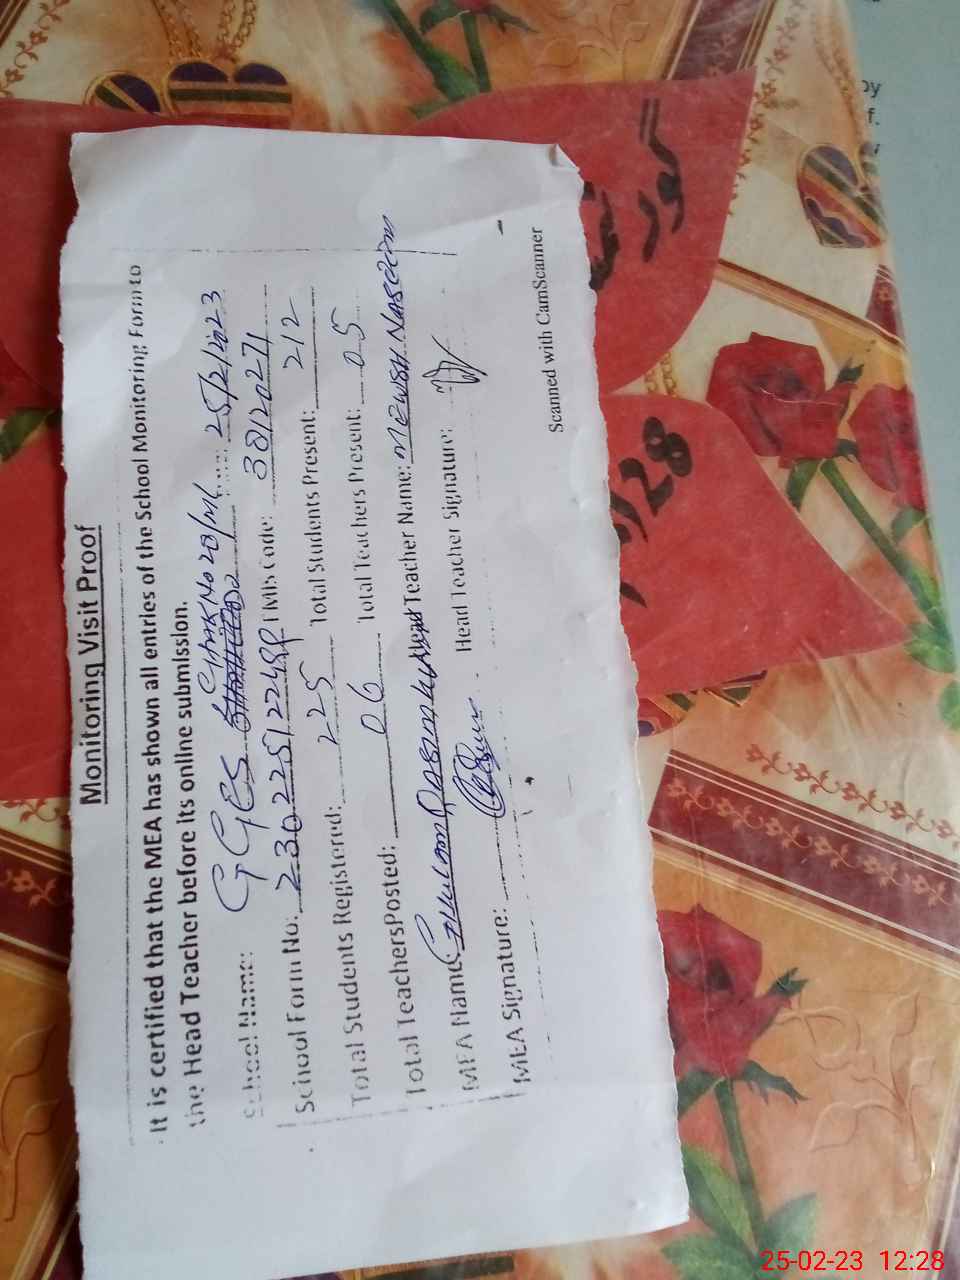 Monitoring Visit Proof
It is certified that the MEA has shown all entries of the School Monitoring Form to
the Head Teacher before its online submission.
School Name: GGES CHAK No 20/ML 25/2/2023
School Form No: EMIS Code: 38120271
Total Students Registered: 225 Total Students Present: 212
Total TeachersPosted: 06 Total Teachers Present: 05
MEA Name: Teacher Name:
MEA Signature: Head Teacher Signature:
Scanned with CamScanner
25-02-23 12:28